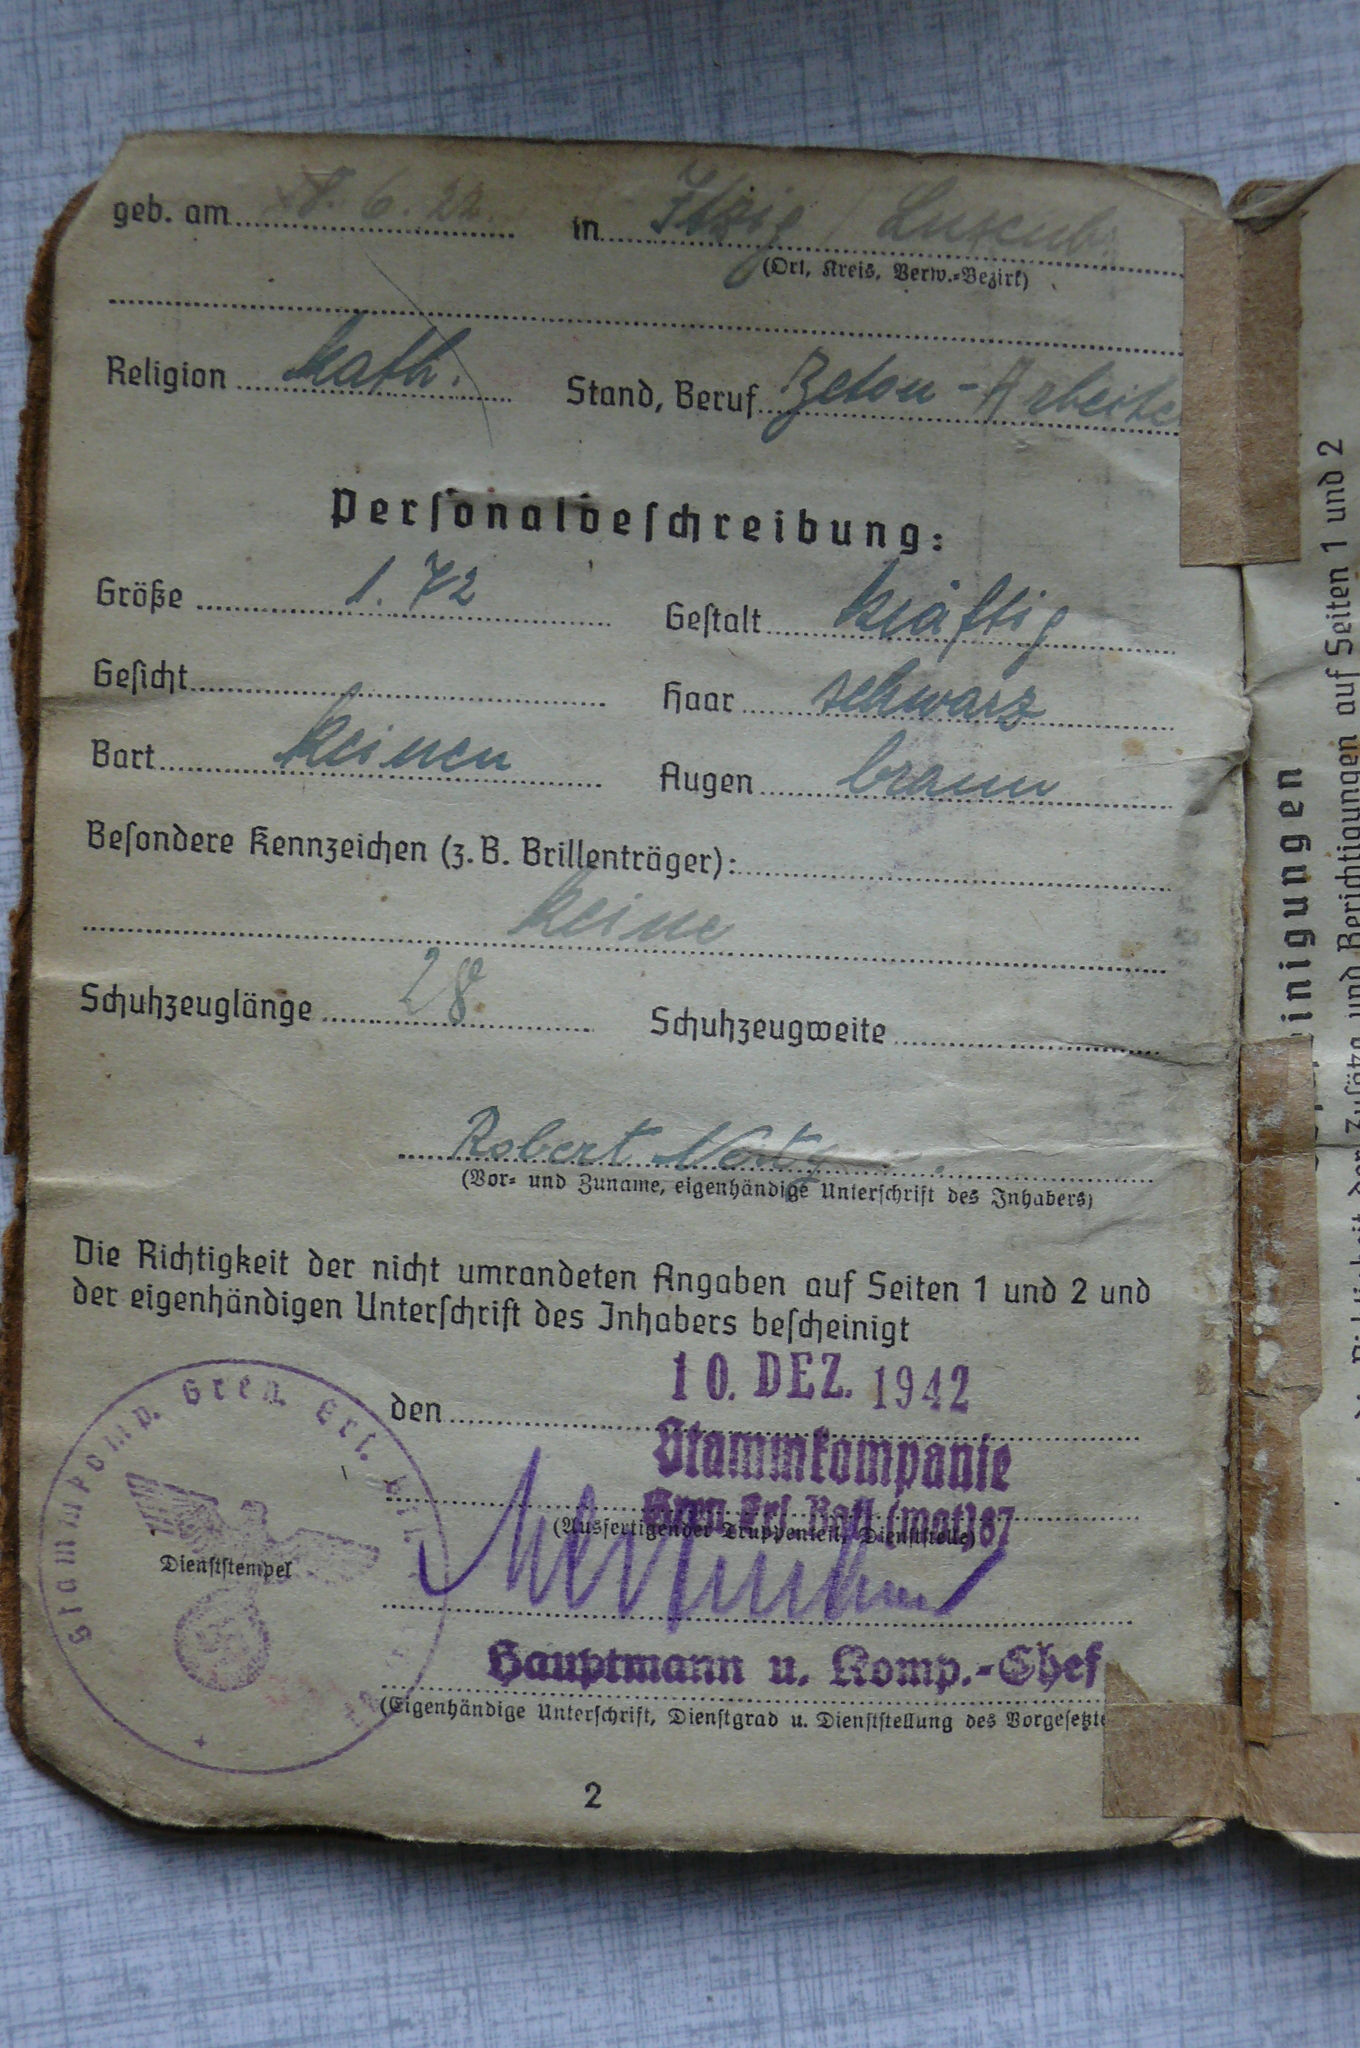 geb. am 8. 6. 22. in Itzig / Luxemb.
(Ort, Kreis, Verw.-Bezirk)
Religion kath. Stand, Beruf Beton-Arbeiter
Personalbeschreibung:
Größe 1.72 Gestalt kräftig
Gesicht Haar schwarz
Bart keinen Augen braun
Besondere Kennzeichen (z. B. Brillenträger):
keine
Schuhzeuglänge 28 Schuhzeugweite
Robert
(Vor- und Zuname, eigenhändige Unterschrift des Inhabers)
Die Richtigkeit der nicht umrandeten Angaben auf Seiten 1 und 2 und
der eigenhändigen Unterschrift des Inhabers bescheinigt
den 10. DEZ. 1942
Stammkompanie
Gren. Ers. Batl. (mot) 87
(Ausfertigender Truppenteil, Dienststelle)
Stammkomp. Gren. Ers.
Dienststempel
Hauptmann u. Komp.-Chef
(Eigenhändige Unterschrift, Dienstgrad u. Dienststellung des Vorgesetzte
2
einigungen
der Zusätze und Berichtigungen auf Seiten 1 und 2